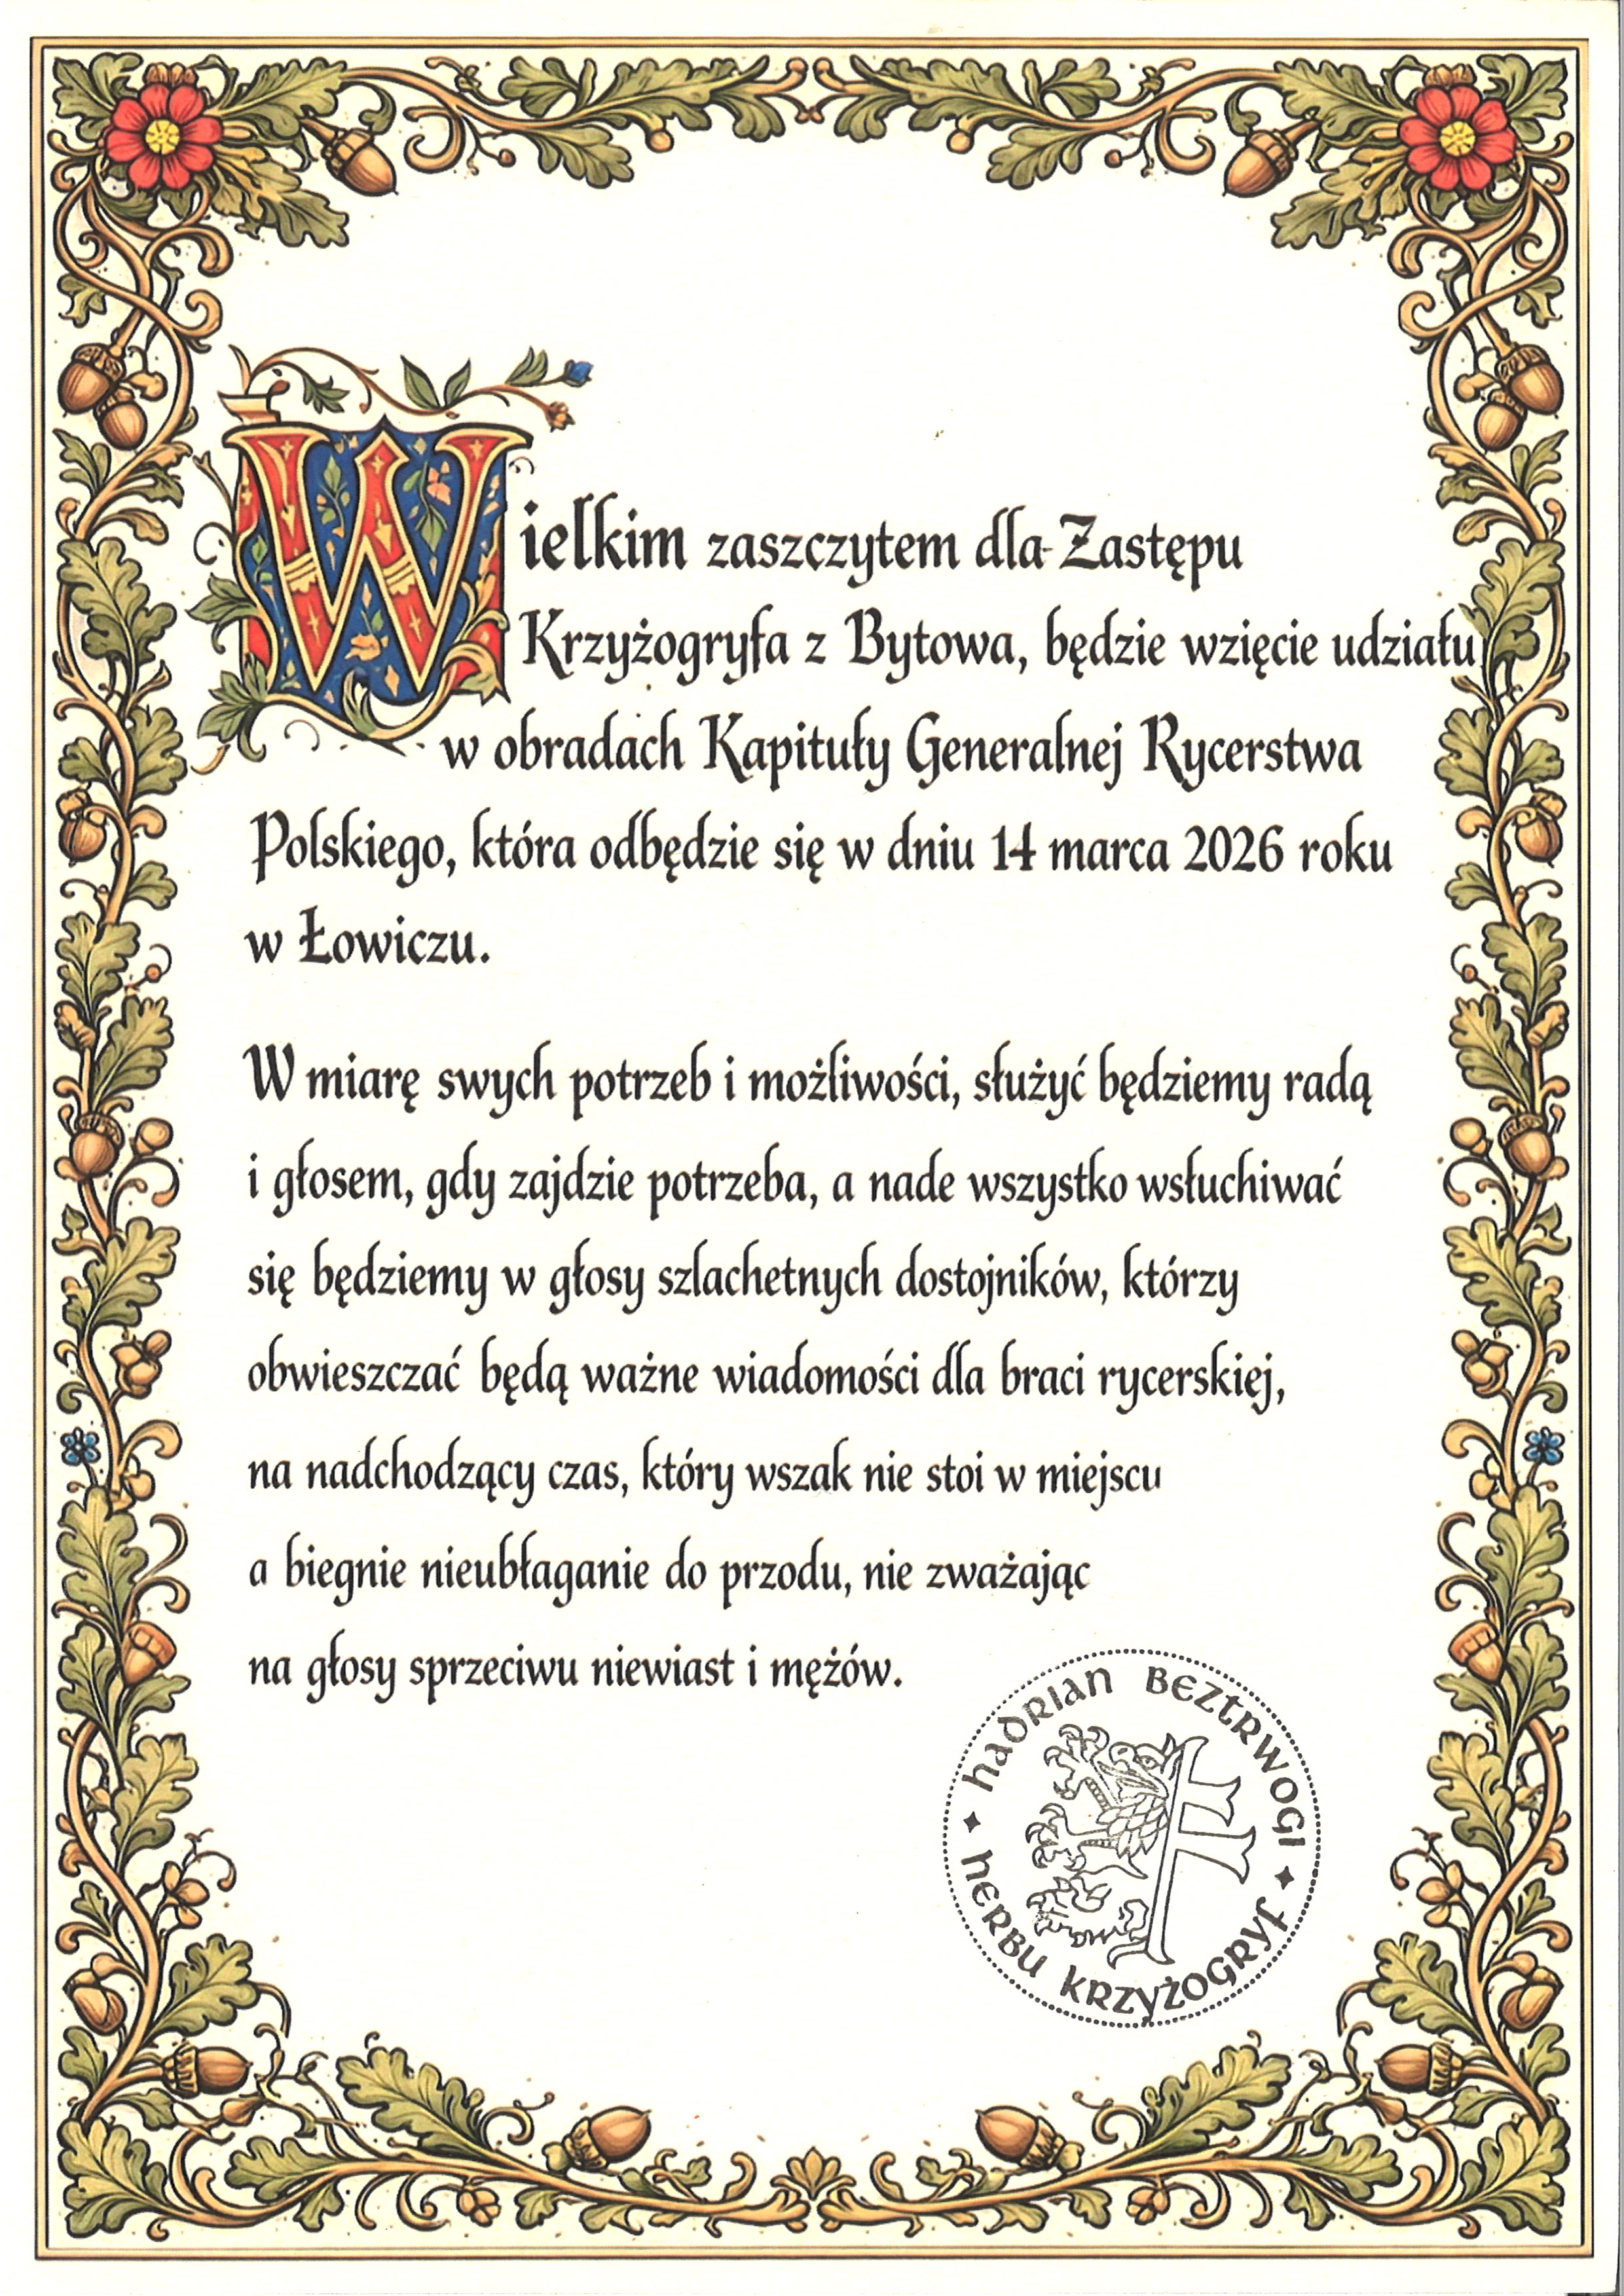 Wielkim zaszczytem dla Zastępu
Krzyżogryfa z Bytowa, będzie wzięcie udziału
w obradach Kapituły Generalnej Rycerstwa
Polskiego, która odbędzie się w dniu 14 marca 2026 roku
w Łowiczu.
W miarę swych potrzeb i możliwości, służyć będziemy radą
i głosem, gdy zajdzie potrzeba, a nade wszystko wsłuchiwać
się będziemy w głosy szlachetnych dostojników, którzy
obwieszczać będą ważne wiadomości dla braci rycerskiej,
na nadchodzący czas, który wszak nie stoi w miejscu
a biegnie nieubłaganie do przodu, nie zważając
na głosy sprzeciwu niewiast i mężów.
HADRIAN BEZTRWOGI
HERBU KRZYŻOGRYF